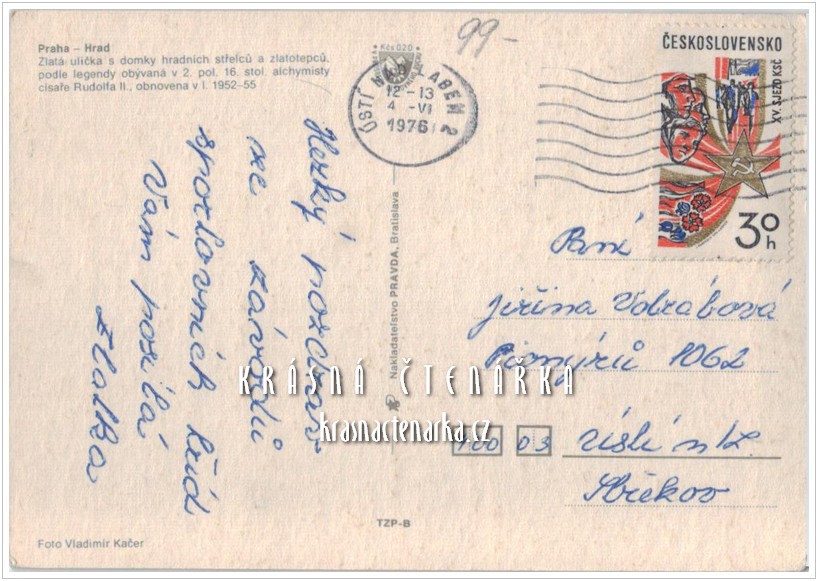 Praha – Hrad
Zlatá ulička s domky hradních střelců a zlatotepců,
podle legendy obývaná v 2. pol. 16. stol. alchymisty
císaře Rudolfa II., obnovena v l. 1952–55
Kčs 0,20
99-
ÚSTÍ NAD LABEM 2
12-13
4.-VI
1976
ČESKOSLOVENSKO
XV. SJEZD KSČ
30h
Hezký pozdrav
ze závodů
sportovních
Vám posílá
Zlatka
Nakladatelství PRAVDA, Bratislava
Paní
Jiřina Vobrábová
Pionýrů 1062
400 03
Ústí n/L
Střekov
KRÁSNÁ ČTENÁŘKA
krasnactenarka.cz
TZP-B
Foto Vladimír Kačer